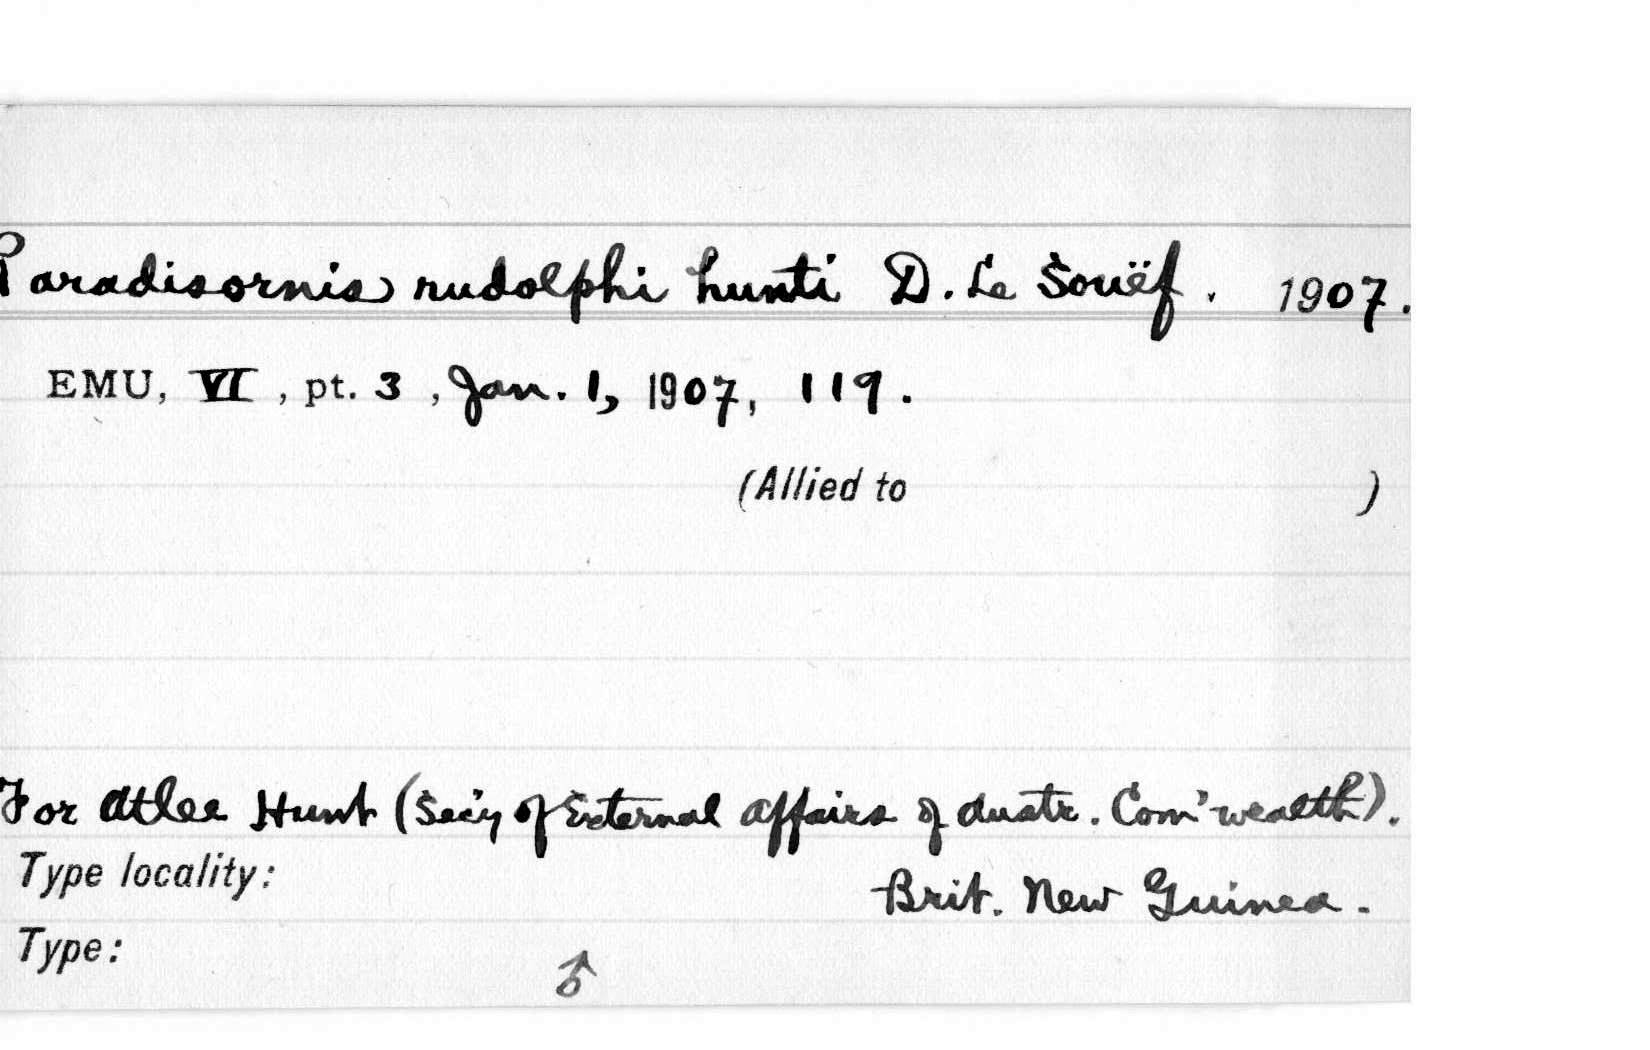 Paradisornis rudolphi hunti D. Le Souëf. 1907.
EMU, VI, pt. 3, Jan. 1, 1907, 119.
(Allied to )
For Atlee Hunt (Sec'y of External Affairs of Austr. Com'wealth).
Type locality: Brit. New Guinea.
Type: ♂